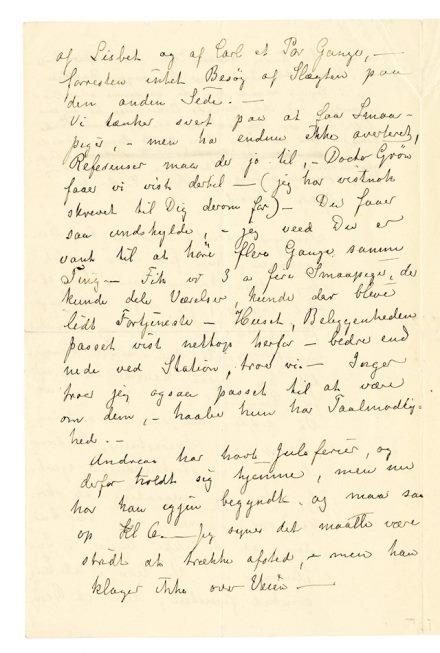 af Lisbet og af Carl et Par Gange, —
forresten intet Besøg af Slægten paa
den anden Side. —
Vi tænker svært paa at faa Smaa-
piger, – men har endnu ikke averteret,
Referenser maa der jo til, – Doctor Grön
faaer vi vist dertil – (jeg har vistnok
skrevet til Dig derom før) – Du faaer
saa undskylde, – jeg veed Du er
vant til at höre flere Gange samme
Ting – Fik vi 3 a fire Smaapiger, de
kunde dele Værelser, kunde der blive
lidt Fortjeneste – Huset, Beliggenheden
passer vist nettop herfor – bedre end
nede ved Station, troer vi. — Inger
troer jeg ogsaa passer til at være
om dem, – haaber hun har Taalmodig-
hed. —
Andreas har havt Juleferier, og
derfor holdt sig hjemme, men nu
har han igjen begyndt og maa saa
op Kl 6. — Jeg synes det maatte være
strådt at trække afsted, – men han
klager ikke over Veien —